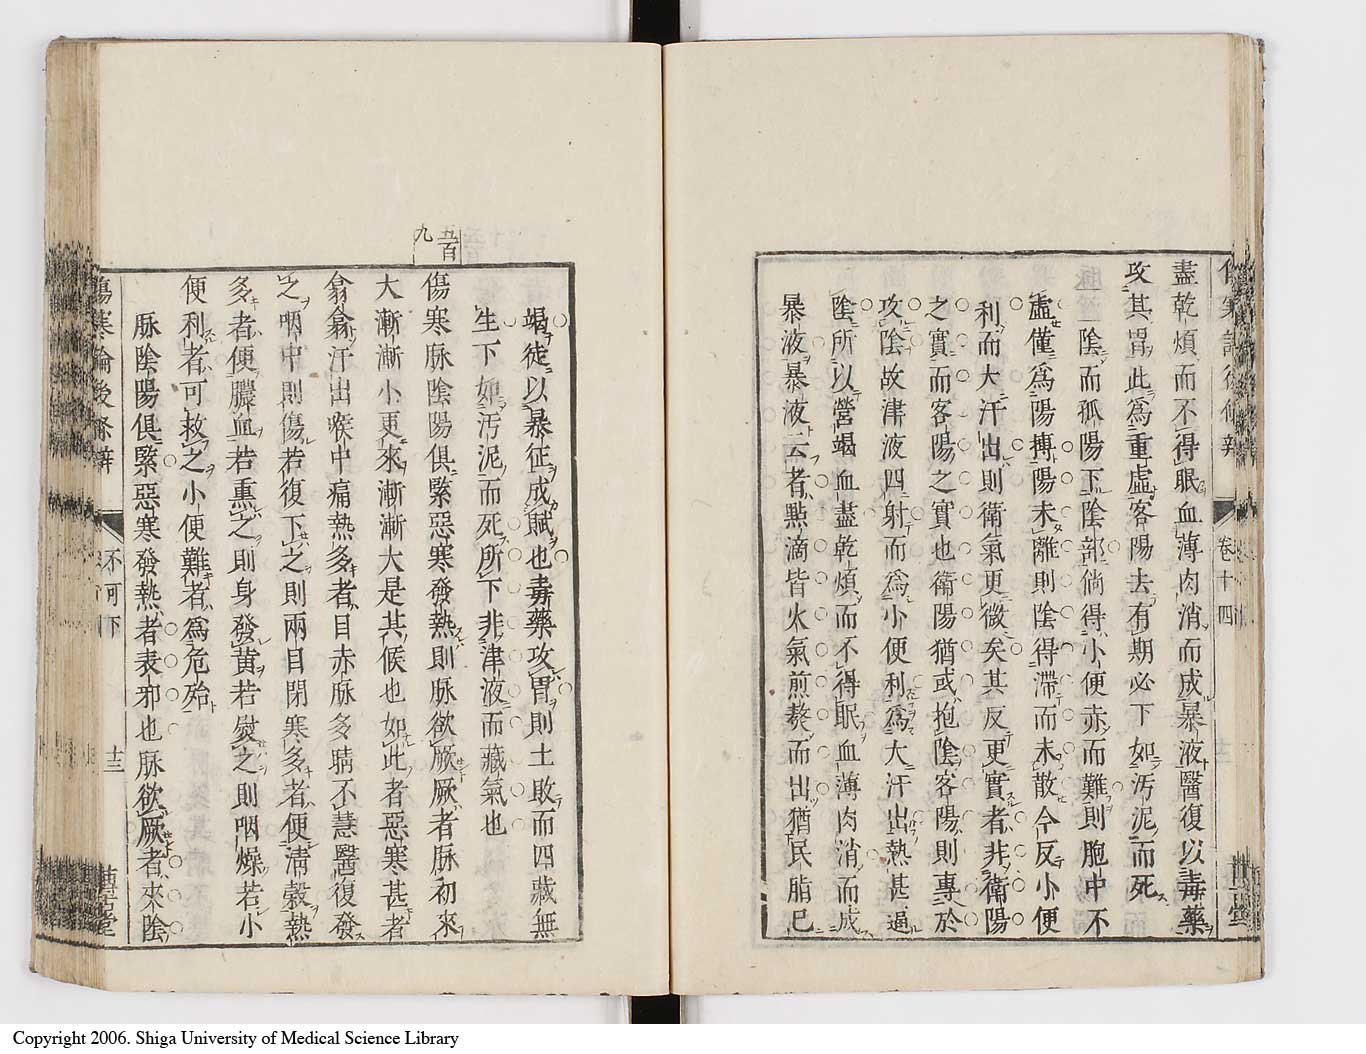 盡乾煩而不得眠血薄肉消而成暴液醫復以毒藥
攻其胃此爲重虛客陽去有期必下如汚泥而死
陰而孤陽下陰部倘得小便赤而難則胞中不
虛僅爲陽搏陽未離則陰得滯而未散今反小便
利而大汗出則衛氣更微矣其反更實者非衛陽
之實而客陽之實也衛陽猶或抱陰客陽則專於
攻陰故津液四射而爲小便利爲大汗出熱甚逼
陰所以營竭血盡乾煩而不得眠血薄肉消而成
暴液暴液云者點滴皆火氣煎熬而出猶民脂已
卷十四
五百
九
竭徒以暴征成賦也毒藥攻胃則土敗而四藏無
生下如汚泥而死所下非津液而藏氣也
傷寒脉陰陽俱緊惡寒發熱則脉欲厥厥者脉初來
大漸漸小更來漸漸大是其候也如此者惡寒甚者
翕翕汗出喉中痛熱多者目赤脉多睛不慧醫復發
之咽中則傷若復下之則兩目閉寒多者便淸穀熱
多者便膿血若熏之則身發黃若熨之則咽燥若小
便利者可救之小便難者爲危殆
脉陰陽俱緊惡寒發熱者表邪也脉欲厥者來陰
傷寒論後條辨
不可下
十三
Copyright 2006. Shiga University of Medical Science Library